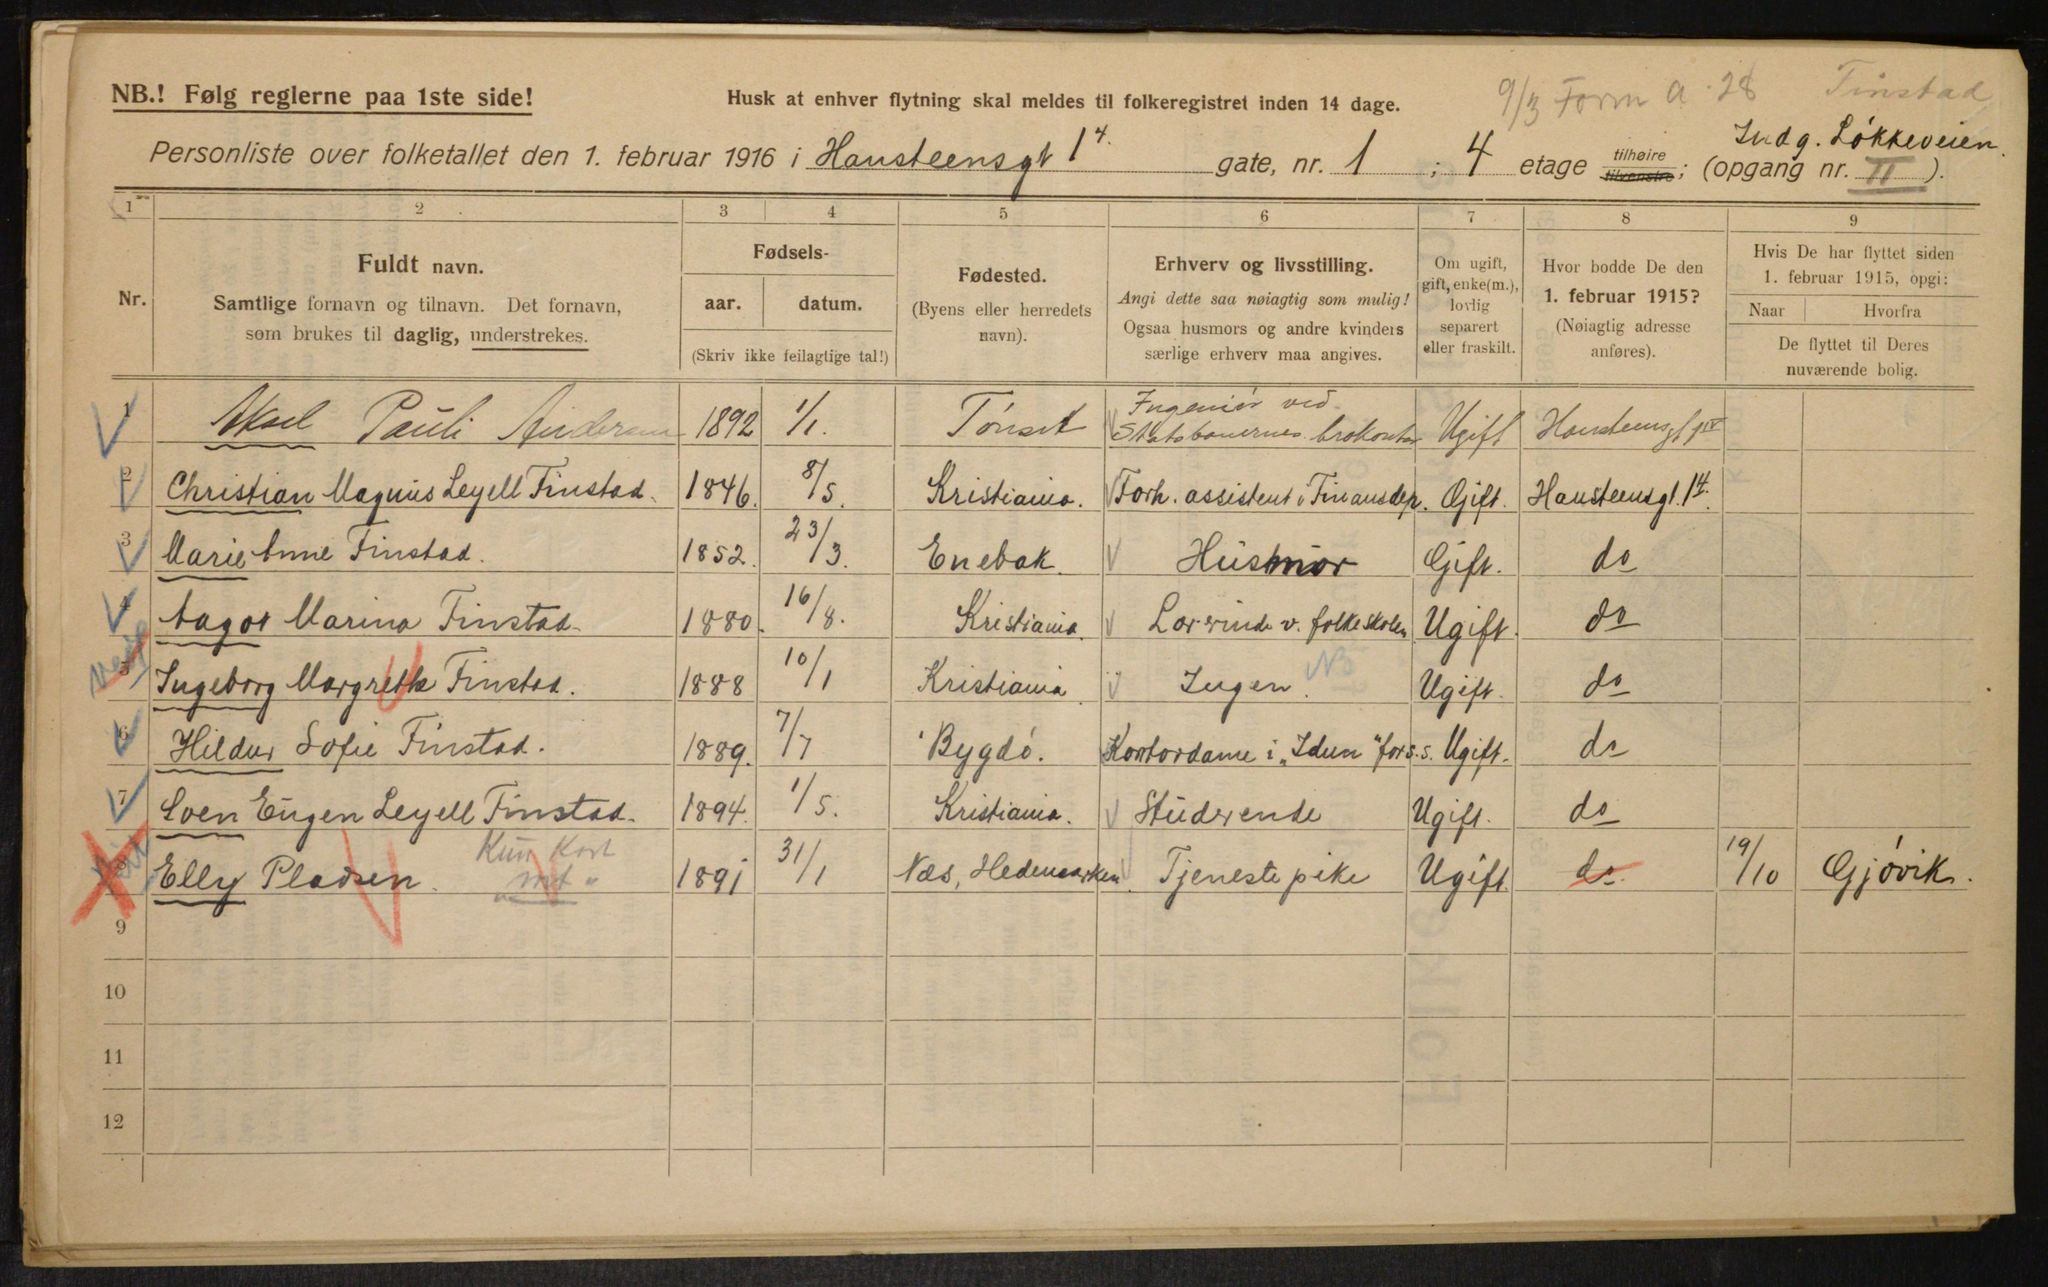 9/3 Form a 28 Tinstad
NB.! Følg reglerne paa 1ste side!
Husk at enhver flytning skal meldes til folkeregistret inden 14 dage.
Indg. Løkkeveien.
Personliste over folketallet den 1. februar 1916 i Hansteensgt 1⁴. gate, nr. 1 ; 4 etage tilhøire tilvenstre; (opgang nr. II ).
1 2 3 4 5 6 7 8 9
Nr.
Fuldt navn.
Samtlige fornavn og tilnavn. Det fornavn,
som brukes til daglig, understrekes.
Fødsels-
aar. datum.
(Skriv ikke feilagtige tal!)
Fødested.
(Byens eller herredets
navn).
Erhverv og livsstilling.
Angi dette saa nøiagtig som mulig!
Ogsaa husmors og andre kvinders
særlige erhverv maa angives.
Om ugift,
gift, enke(m.),
lovlig
separert
eller fraskilt.
Hvor bodde De den
1. februar 1915?
(Nøiagtig adresse
anføres).
Hvis De har flyttet siden
1. februar 1915, opgi:
Naar Hvorfra
De flyttet til Deres
nuværende bolig.
1 Aksel Pauli Andersen 1892 1/1. Tønset Ingeniør ved Statsbanernes brokontor Ugift Hansteensgt 1 IV
2 Christian Magnus Leyell Finstad. 1846. 8/5. Kristiania. Forh. assistent i Finansdep. Gift. Hansteensgt. 1⁴.
3 Marie Anne Finstad. 1852. 23/3. Enebak. Husmor Gift. do
4 Aagot Marina Finstad. 1880. 16/8. Kristiania. Lærerinde v. folkeskolen Ugift. do
5 Ingeborg Margrethe Finstad. 1888 10/1 Kristiania Ingen. NB Ugift. do
6 Hildur Sofie Finstad. 1889. 7/7 Bygdø. Kontordame i „Idun" fors.s. Ugift. do
7 Sven Eugen Leyell Finstad. 1894. 1/5. Kristiania. Studerende Ugift. do
Kun Kort
8 Elly Pladsen. mt " 1891 31/1 Næs, Hedemarken. Tjenestepike Ugift do. 19/10 Gjøvik.
9
10
11
12